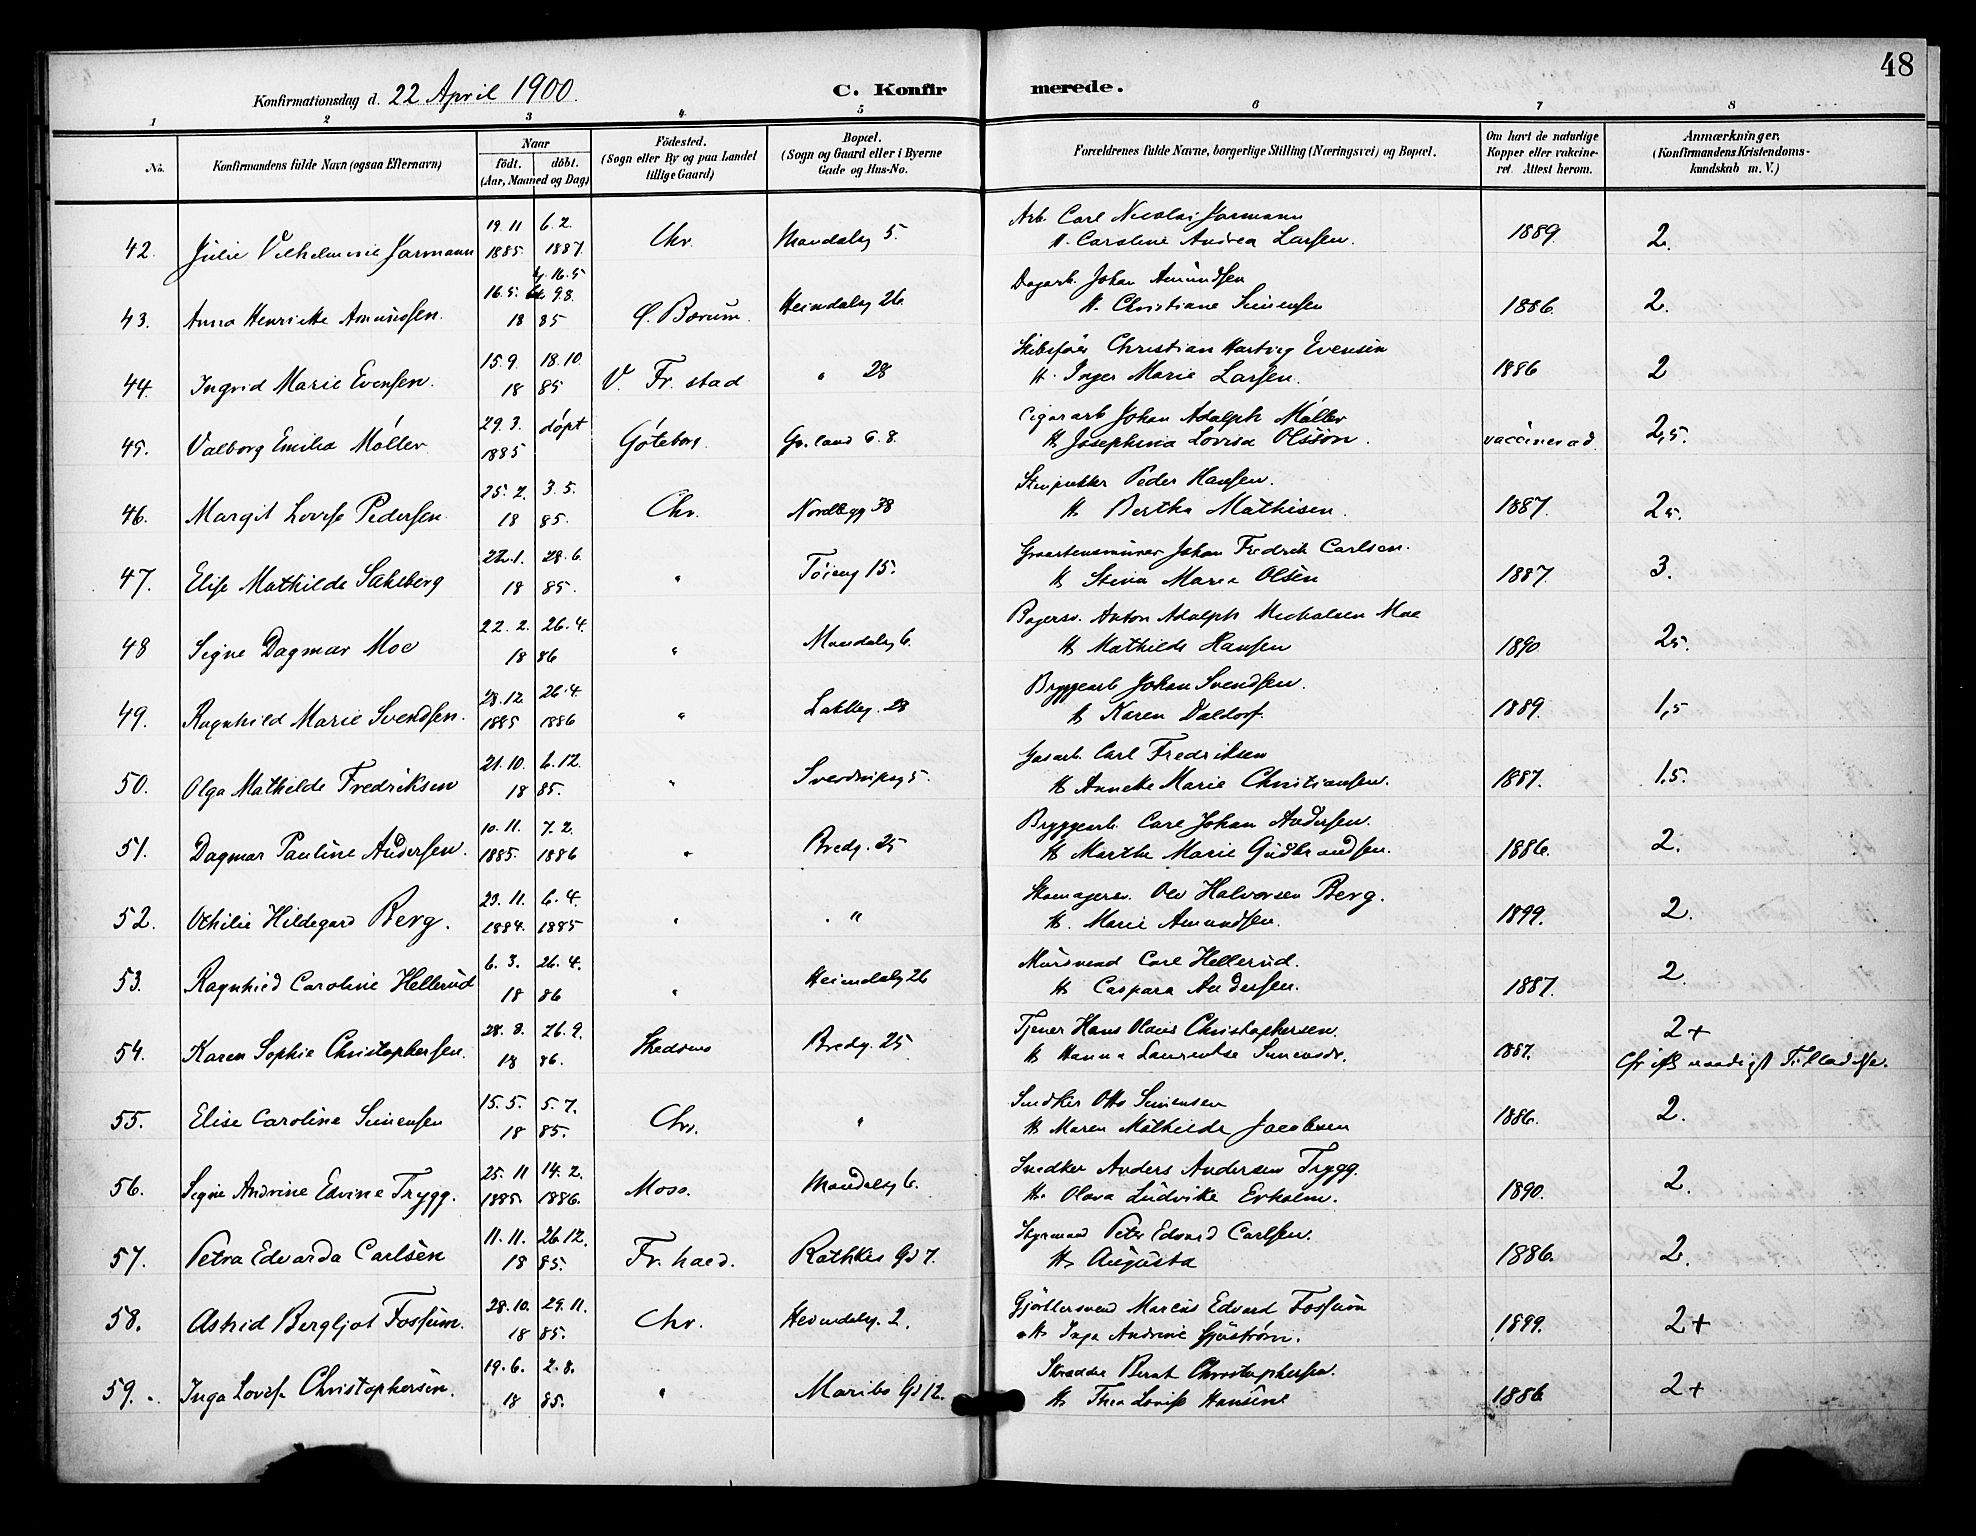 48
Konfirmationsdag d. 22 April 1900.
C. Konfirmerede.
1 2 3 4 5 6 7 8
No. Konfirmandens fulde Navn (ogsaa Efternavn) Naar født. døbt. (Aar, Maaned og Dag) Födested. (Sogn eller By og paa Landet tillige Gaard) Bopæl. (Sogn og Gaard eller i Byerne Gade og Hus-No. Forældrenes fulde Navne, borgerlige Stilling (Næringsvei) og Bopæl. Om havt de naturlige Kopper eller vakcineret. Attest herom. Anmærkninger. (Konfirmandens Kristendomskundskab m. V.)
19.11 6.2. Arb. Carl Nicolai Jarmann
42. Julie Vilhelmine Jarmann 1885 1887. Chr. Mandalsg 5. H. Caroline Andrea Larsen. 1889. 2.
16.5. 9.8. Dagarb. Johan Amundsen
43. Anna Henriette Amundsen. 18 85 Ø. Bærum. Heimdalsg 26 H. Christiane Simensen 1886. 2.
15.9. 18.10. Christian Hartvig Evensen
44. Ingrid Marie Evensen. 18 85 V. Fr. stad " 28 H. Inger Marie Larsen. 1886 2
29.3. döpt Cigararb Johan Adolph Møller
45. Valborg Emilia Møller. 1885 Göteborg. Grland G. 8. H. Josephina Lovisa Olsson. vaccinerad. 2,5.
25.2. 3.5. Peder Hansen.
46. Margit Lovise Pedersen. 18 85. Chr. Nordbygg 38 H. Bertha Mathisen. 1887. 2 5.
22.1. 28.6. Johan Fredrik Carlsen.
47. Elise Mathilde Sahlberg 18 85. " Töieng 15. H. Marie Olsen 1887. 3.
22.2. 26.4. Bagersv. Anton Adolph Michalsen Moe
48 Signe Dagmar Moe 18 86 " Mandalsg 6. H. Mathilde Hansen 1890. 2 5.
28.12. 26.4. Bryggearb Johan Svendsen.
49. Ragnhild Marie Svendsen. 1885 1886 " Lakkeg. 28 H. Karen Daldorf. 1889. 1,5
21.10. 6.12. Gasarb. Carl Fredriksen
50. Olga Mathilde Fredriksen 18 85. " Sverdrupsg 5. H. Anneke Marie Christiansen. 1887. 1.5.
10.11. 7.2. Bryggearb. Carl Johan Andersen.
51. Dagmar Pauline Andersen. 1885. 1886 " Bredg. 25 H. Marthe Marie Gudbrandsen. 1886. 2.
23.11. 6.4. Skomagersv. Ole Halvorsen Berg.
52. Othilie Hildegard Berg. 1884. 1885 " " H. Marie Amundsen. 1899. 2.
6.3. 26.4. Mursvend Carl Hellerud.
53. Ragnhild Caroline Hellerud 18 86 " Heimdalsg 26 H. Caspara Andersen. 1887. 2.
28.8. 26.9. Tjener Hans Olaus Christophersen. 2+
54. Karen Sophie Christophersen. 18 86. Skedsmo Bredg. 25 H. Hanna Laurentse Simensdr. 1887. Tilladelse.
15.5. 5.7. Snedker Otto Simensen
55. Elise Caroline Simensen 18 85. Chr. " H. Maren Mathilde Jacobsen 1886. 2.
25.11 14.2. Snedker Anders Andersen Trygg.
56. Signe Andrine Edvine Trygg. 1885. 1886. Moss. Mandalsg 6. H. Olava Ludvike Erholm. 1890. 2.
11.11. 26.12. Styrmand Peter Edvard Carlsen.
57. Petra Edvarda Carlsen 18 85. Fr. hald. Rathkes Gd 7. H. Augusta 1886. 2.
28.10. 29.11. Gjørtlersvend Marius Edvard Fossum
58. Astrid Bergljot Fossum. 18 85. Chr. Heimdalsg. 2. H. Inga Andrine Gjöström. 1899. 2+
19.6. 2.8. Skrædder Bernt Christophersen.
59. Inga Lovise Christophersen. 18 85. " Maribo Gd 12. H. Thea Lovise Hansen 1886 2+